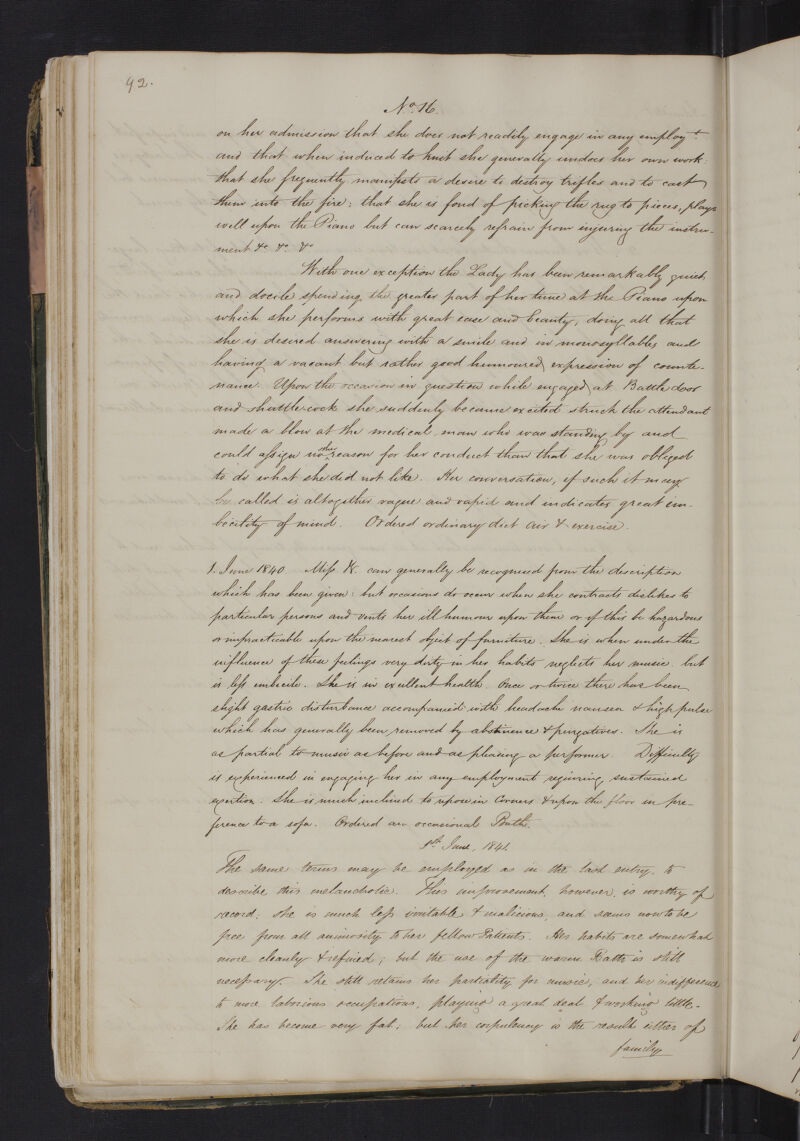 92.
No. 16.
on her admission that she does not readily engage in any employt.
and that when induced to knit she generally undoes her own work:
that she frequently manifests a desire to destroy trifles and to cast
them into the fire; that she is fond of picking the rug to pieces, plays
well upon the Piano but can scarcely refrain from injuring the instru-
ment &c &c &c
With one exception the Lady has been remarkably quiet
and docile spending the greater part of her time at the Piano upon
which she performs with great ease and beauty, doing all that
she is desired answering with a smile and in monosyllables and
having a vacant but rather good humoured expression of counte-
nance. Upon the occasion in question while engaged at Battledoor
and shuttle-cock she suddenly became excited struck the attendant
made a blow at the medical man who was standing by and
could assign no other reason for her conduct than that she was obliged
to do what she did not like. Her conversation, if such it may
be called is altogether vague and vapid and indicates great im-
becility of mind. Ordered ordinary diet air & exercise.
1. June 1840. Miss K. can generally be recognised from the description
which has been given: but occasions do occur when she contracts dislikes to
particular persons and vents her ill humour upon them or if this be hazardous
or impracticable upon the nearest object of furniture. She is when under the
influence of these feelings very dirty in her habits neglects her music but
is less imbecile. She is in excellent health. Once or twice there has been
slight gastric disturbance accompanied with headache nausea & high pulse
which has generally been removed by abstinence & purgatives. She is
as partial to music as before and as pleasing a performer. Difficulty
is experienced in engaging her in any employment requiring sustained
exertion. She is much inclined to repose in corners & upon the floor in pre-
ference to a sofa. Ordered an occasional Bath.
1st. June, 1841.
The same terms may be employed as in the last entry, to
describe this melancholic. This improvement, however, is worthy of
record; she is much less irritable & malicious, and seems now to be
free from all animosity to her fellow Patients. Her habits are somewhat
more cleanly & refined; but the use of the warm Bath is still
necessary. She still retains her partiality for music, and her indifference
to more laborious occupations, playing a great deal & working little.
She has become very fat; but her corpulency is the result either of
family